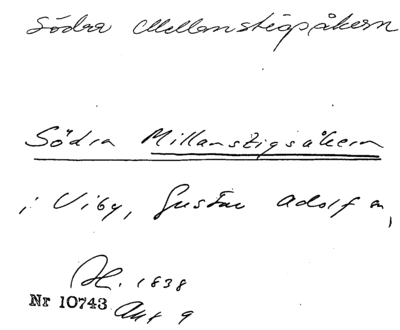 Södra Mellanstigsåkern
Södra Millanstigsåkern
i Viby, Gustav Adolf n,
1838
Nr 10743 Akt 9